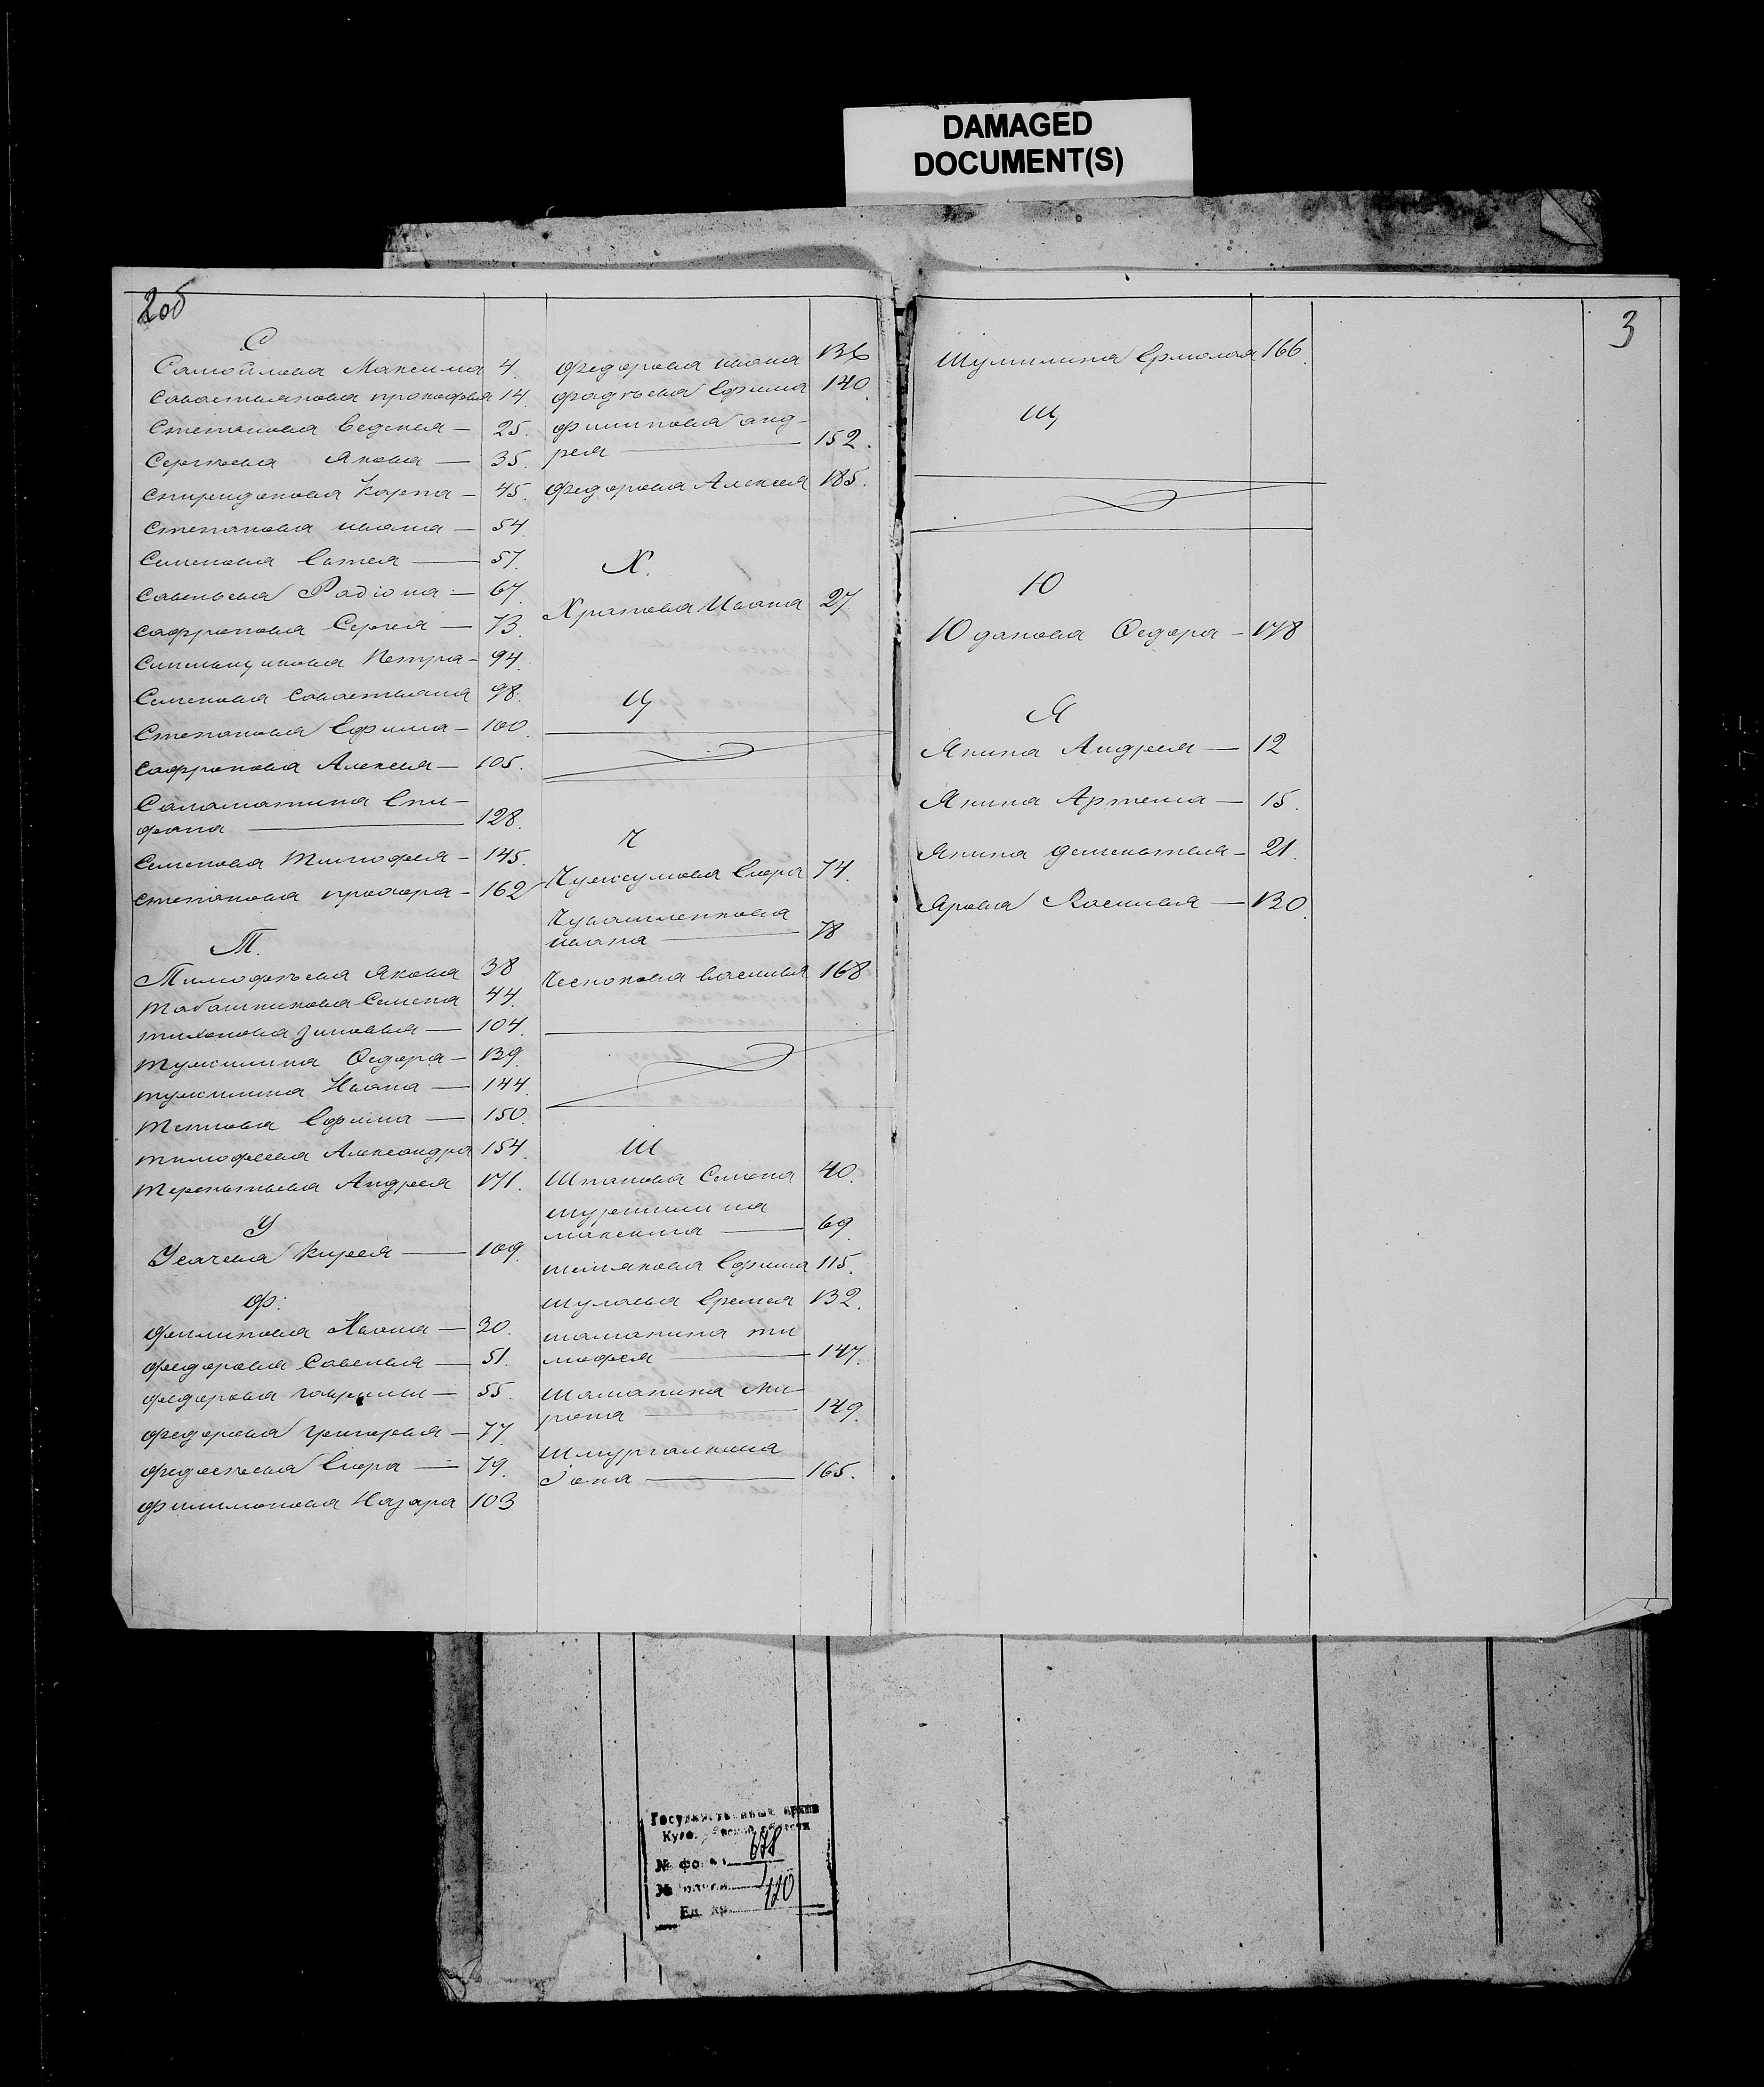 DAMAGED
DOCUMENT(S)
2об
С
Самойлова Максима 4.
Савостьянова прокофья 14.
Степанова Евдокея — 25.
Сергѣева Якова — 35.
Спиридонова Карпа — 45.
Степанова ивана — 54.
Семенова Евтея — 57.
Савельева Радіона — 67.
Сафронова Сергея — 73.
Синильщикова Петра — 94.
Семенова Савостьяна 98.
Степанова Ефима — 100.
Сафронова Алексея — 105.
Саламатина Епи-
фана — 128.
Семенова Тимофея — 145.
Степанова прохора — 162
Т.
Тимофѣева Якова 38
Табашникова Семена 44.
Тихонова Зиновья — 104.
Тумшина Федора — 139.
Тумшина Ивана — 144.
Теплова Ефима — 150.
Тимофеева Александра 154.
Терентьева Андрея 171.
У
Усачева Кирея — 109.
Ф.
Филипова Ивана — 30.
Федорова Савелья — 51.
Федорова гаврилы — 55.
Федорова григорья — 77.
Федосѣева Егора — 79.
Филимонова Назара 103
Федорова ивана 136
Фадѣева Ефима 140.
Филипова анд-
рея — 152.
Федорова Алексея 185.
Х.
Храпова Ивана 27
Ц
Ч
Чумсумова Егора 74.
Чувашленкова
ивана — 78
Чеснокова василья 168
Ш
Шпанова Семена 40.
Шурыгина
максима — 69.
Шишанова Ефима 115.
Шулаева Еремея 132.
Шаманина ти
мофея — 147.
Шаманина Ми-
рона — 149.
Шмургалкина
Іона — 165.
3
Шумилина Ермолая 166.
Щ
Ю
Юданова Федора — 178
Я
Янина Андрея — 12
Янина Артема — 15.
Янина дементья — 21.
Ярова Василья — 130.
Государственный архив
№ фонда 678
№ описи 1
Ед. хр. 120